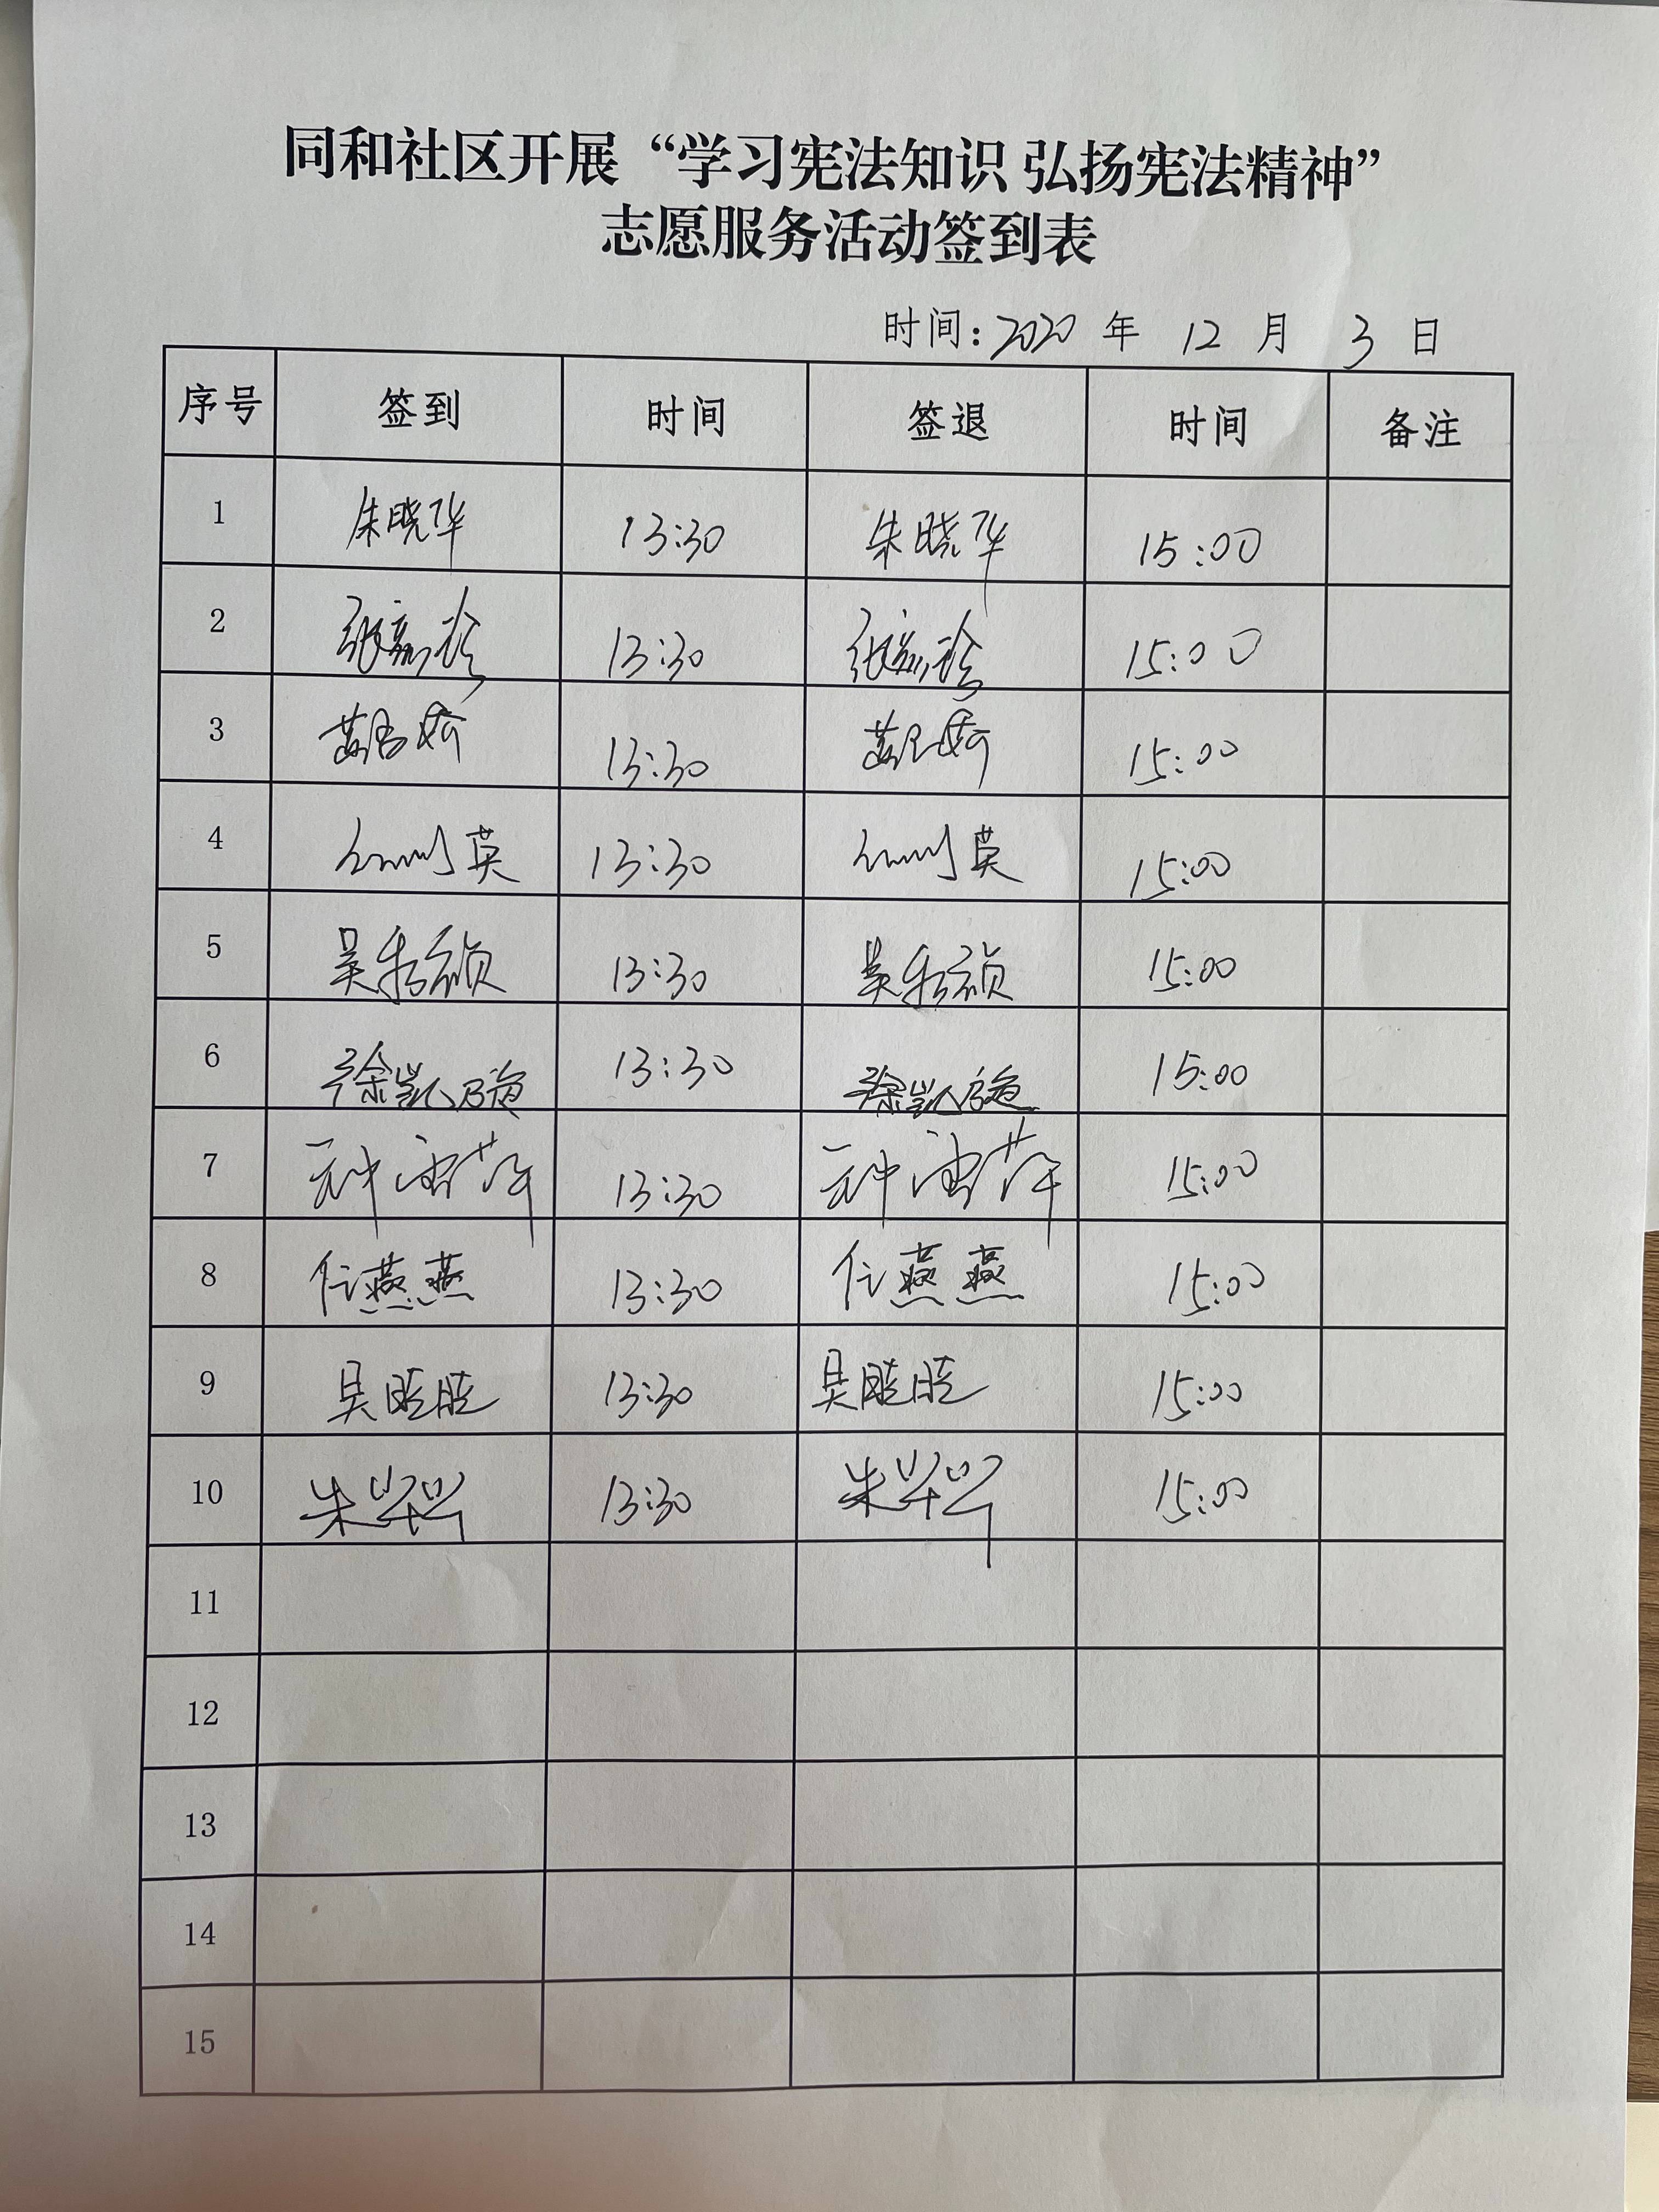 同和社区开展“学习宪法知识 弘扬宪法精神”
志愿服务活动签到表
时间：2020 年 12 月 3 日
序号 签到 时间 签退 时间 备注
1 朱晓华 13:30 朱晓华 15:00
2 13:30 15:00
3 13:30 15:00
4 英 13:30 英 15:00
5 吴秀祯 13:30 吴秀祯 15:00
6 徐凯 13:30 徐凯 15:00
7 萍 13:30 萍 15:00
8 任燕燕 13:30 任燕燕 15:00
9 吴晓晓 13:30 吴晓晓 15:00
10 朱 13:30 朱 15:00
11
12
13
14
15